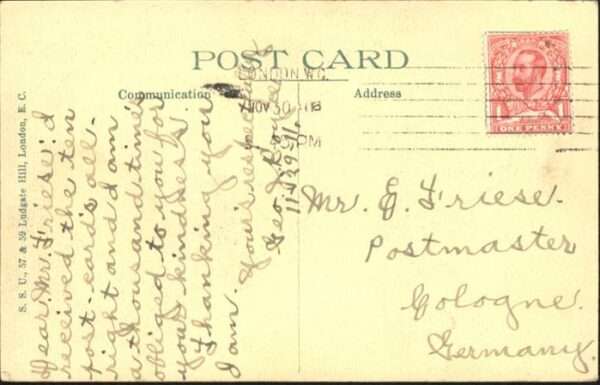 POST CARD
Communication
Address
LONDON. W.C.
NOV 30
PM
ONE PENNY
S. S. U., 57 & 59 Ludgate Hill, London, E. C.
Dear. Mr. Friese: I
received the ten
post-cards all-
right and I am
a thousand times
obliged to you for
your kindness.
Thanking you
I am.
Yours respectfully
Geo.
11-29-11.
Mr. E. Friese.
Postmaster
Cologne.
Germany.